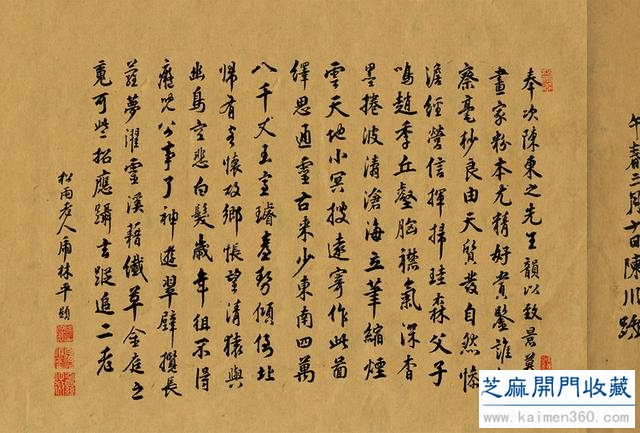 午春二月十日陳川
奉次陳東之先生韻以致景
畫家粉本尤精好賞鑒誰
察毫杪良由天質發自然慘
澹經營信揮掃珪森父子
鳴趙季丘壑胸襟氣深杳
墨捲波濤滄海立筆縮煙
雲天地小冥搜遠寄作此圖
繹思通靈古來少東南四萬
八千丈玉室璿臺勢傾倚北
歸有客懷故鄉悵望清猿與
幽鳥空悲白髮歲年徂不得
癡兒公事了神遊翠壁攬長
蘿夢濯靈溪藉纖草金庭之
竟可些招應躡玄蹤追二老
松雨老人虎林平顯
芝麻開門收藏
www.kaimen360.com